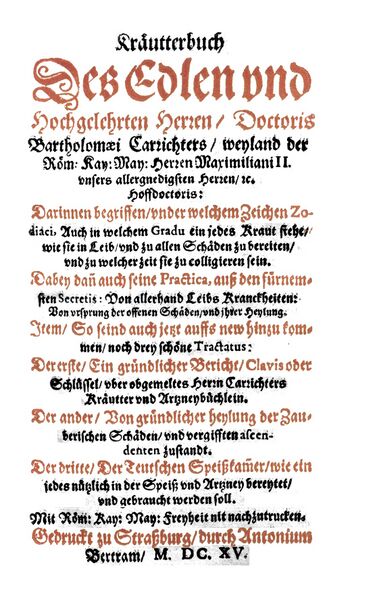 Kräutterbuch
Des Edlen vnd
Hochgelehrten Herren / Doctoris
Bartholomæi Carrichters / weyland der
Röm: Kay: May: Herren Maximiliani II.
vnsers allergnedigsten Herren / ꝛc.
Hoffdoctoris:
Darinnen begriffen / vnder welchem Zeichen Zo-
diaci, Auch in welchem Gradu ein jedes Kraut stehe /
wie sie in Leib / vnd zu allen Schäden zu bereiten /
vnd zu welcher zeit sie zu colligieren sein.
Dabey dañ auch seine Practica, auß den fürnem-
sten Secretis: Von allerhand Leibs Kranckheiten:
Von vrsprung der offenen Schäden / vnd jhrer Heylung.
Item / So seind auch jetzt auffs new hinzu kom-
men / noch drey schöne Tractatus:
Der erste / Ein gründlicher Bericht / Clavis oder
Schlüssel / vber obgemeltes Herrn Carrichters
Kräutter vnd Artzneybüchlein.
Der ander / Von gründlicher heylung der Zau-
berischen Schäden / vnd vergifften ascen-
denten zustandt.
Der dritte / Der Teutschen Speißkam̃er / wie ein
jedes nützlich in der Speiß vnd Artzney bereytet /
vnd gebraucht werden soll.
Mit Röm: Kay: May: Freyheit nit nachzutrucken.
Gedruckt zu Straßburg / durch Antonium
Bertram / M. DC. XV.